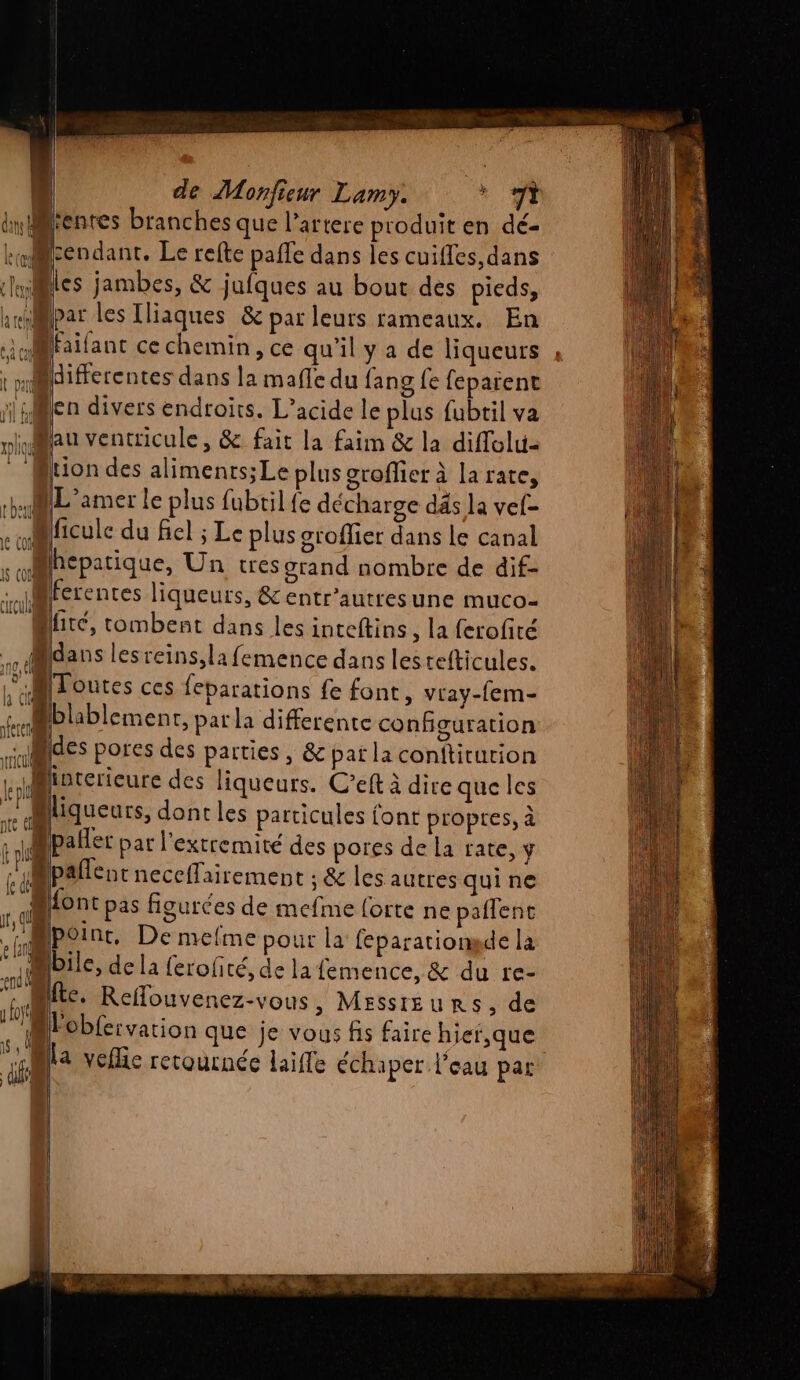 de Monſieur Lamy. 71
rentes branches que l'artere produit en dé-
cendant. Le reſte paſſe dans les cuiſſes, dans
les jambes, & juſques au bout des pieds,
par les Iliaques & par leurs rameaux. En
faiſant ce chemin, ce qu'il y a de liqueurs
differentes dans la maſſe du ſang ſe ſeparent
en divers endroits. L'acide le plus ſubtil va
au ventricule, & fait la faim & la diſſolu-
tion des aliments; Le plus groſſier à la rate,
L'amer le plus ſubtil ſe décharge dãs la veſ-
ſicule du fiel ; Le plus groſſier dans le canal
hepatique, Un tres grand nombre de dif-
ferentes liqueurs, & entr'autres une muco-
ſité, tombent dans les inteſtins, la ſeroſité
dans les reins, la ſemence dans les teſticules.
Toutes ces ſeparations ſe font, vray-ſem-
blablement, par la differente configuration
des pores des parties, & par la conſtitution
interieure des liqueurs. C'eſt à dire que les
liqueurs, dont les particules ſont propres, à
paſſer par l'extremité des pores de la rate, y
paſſent neceſſairement ; & les autres qui ne
ſont pas figurées de meſme ſorte ne paſſent
point. De meſme pour la ſeparation de la
bile, de la ſeroſité, de la ſemence, & du re-
ſte. Reſſouvenez-vous, MESSIEURS, de
l'obſervation que je vous fis faire hier, que
la veſſie retournée laiſſe échaper l'eau par